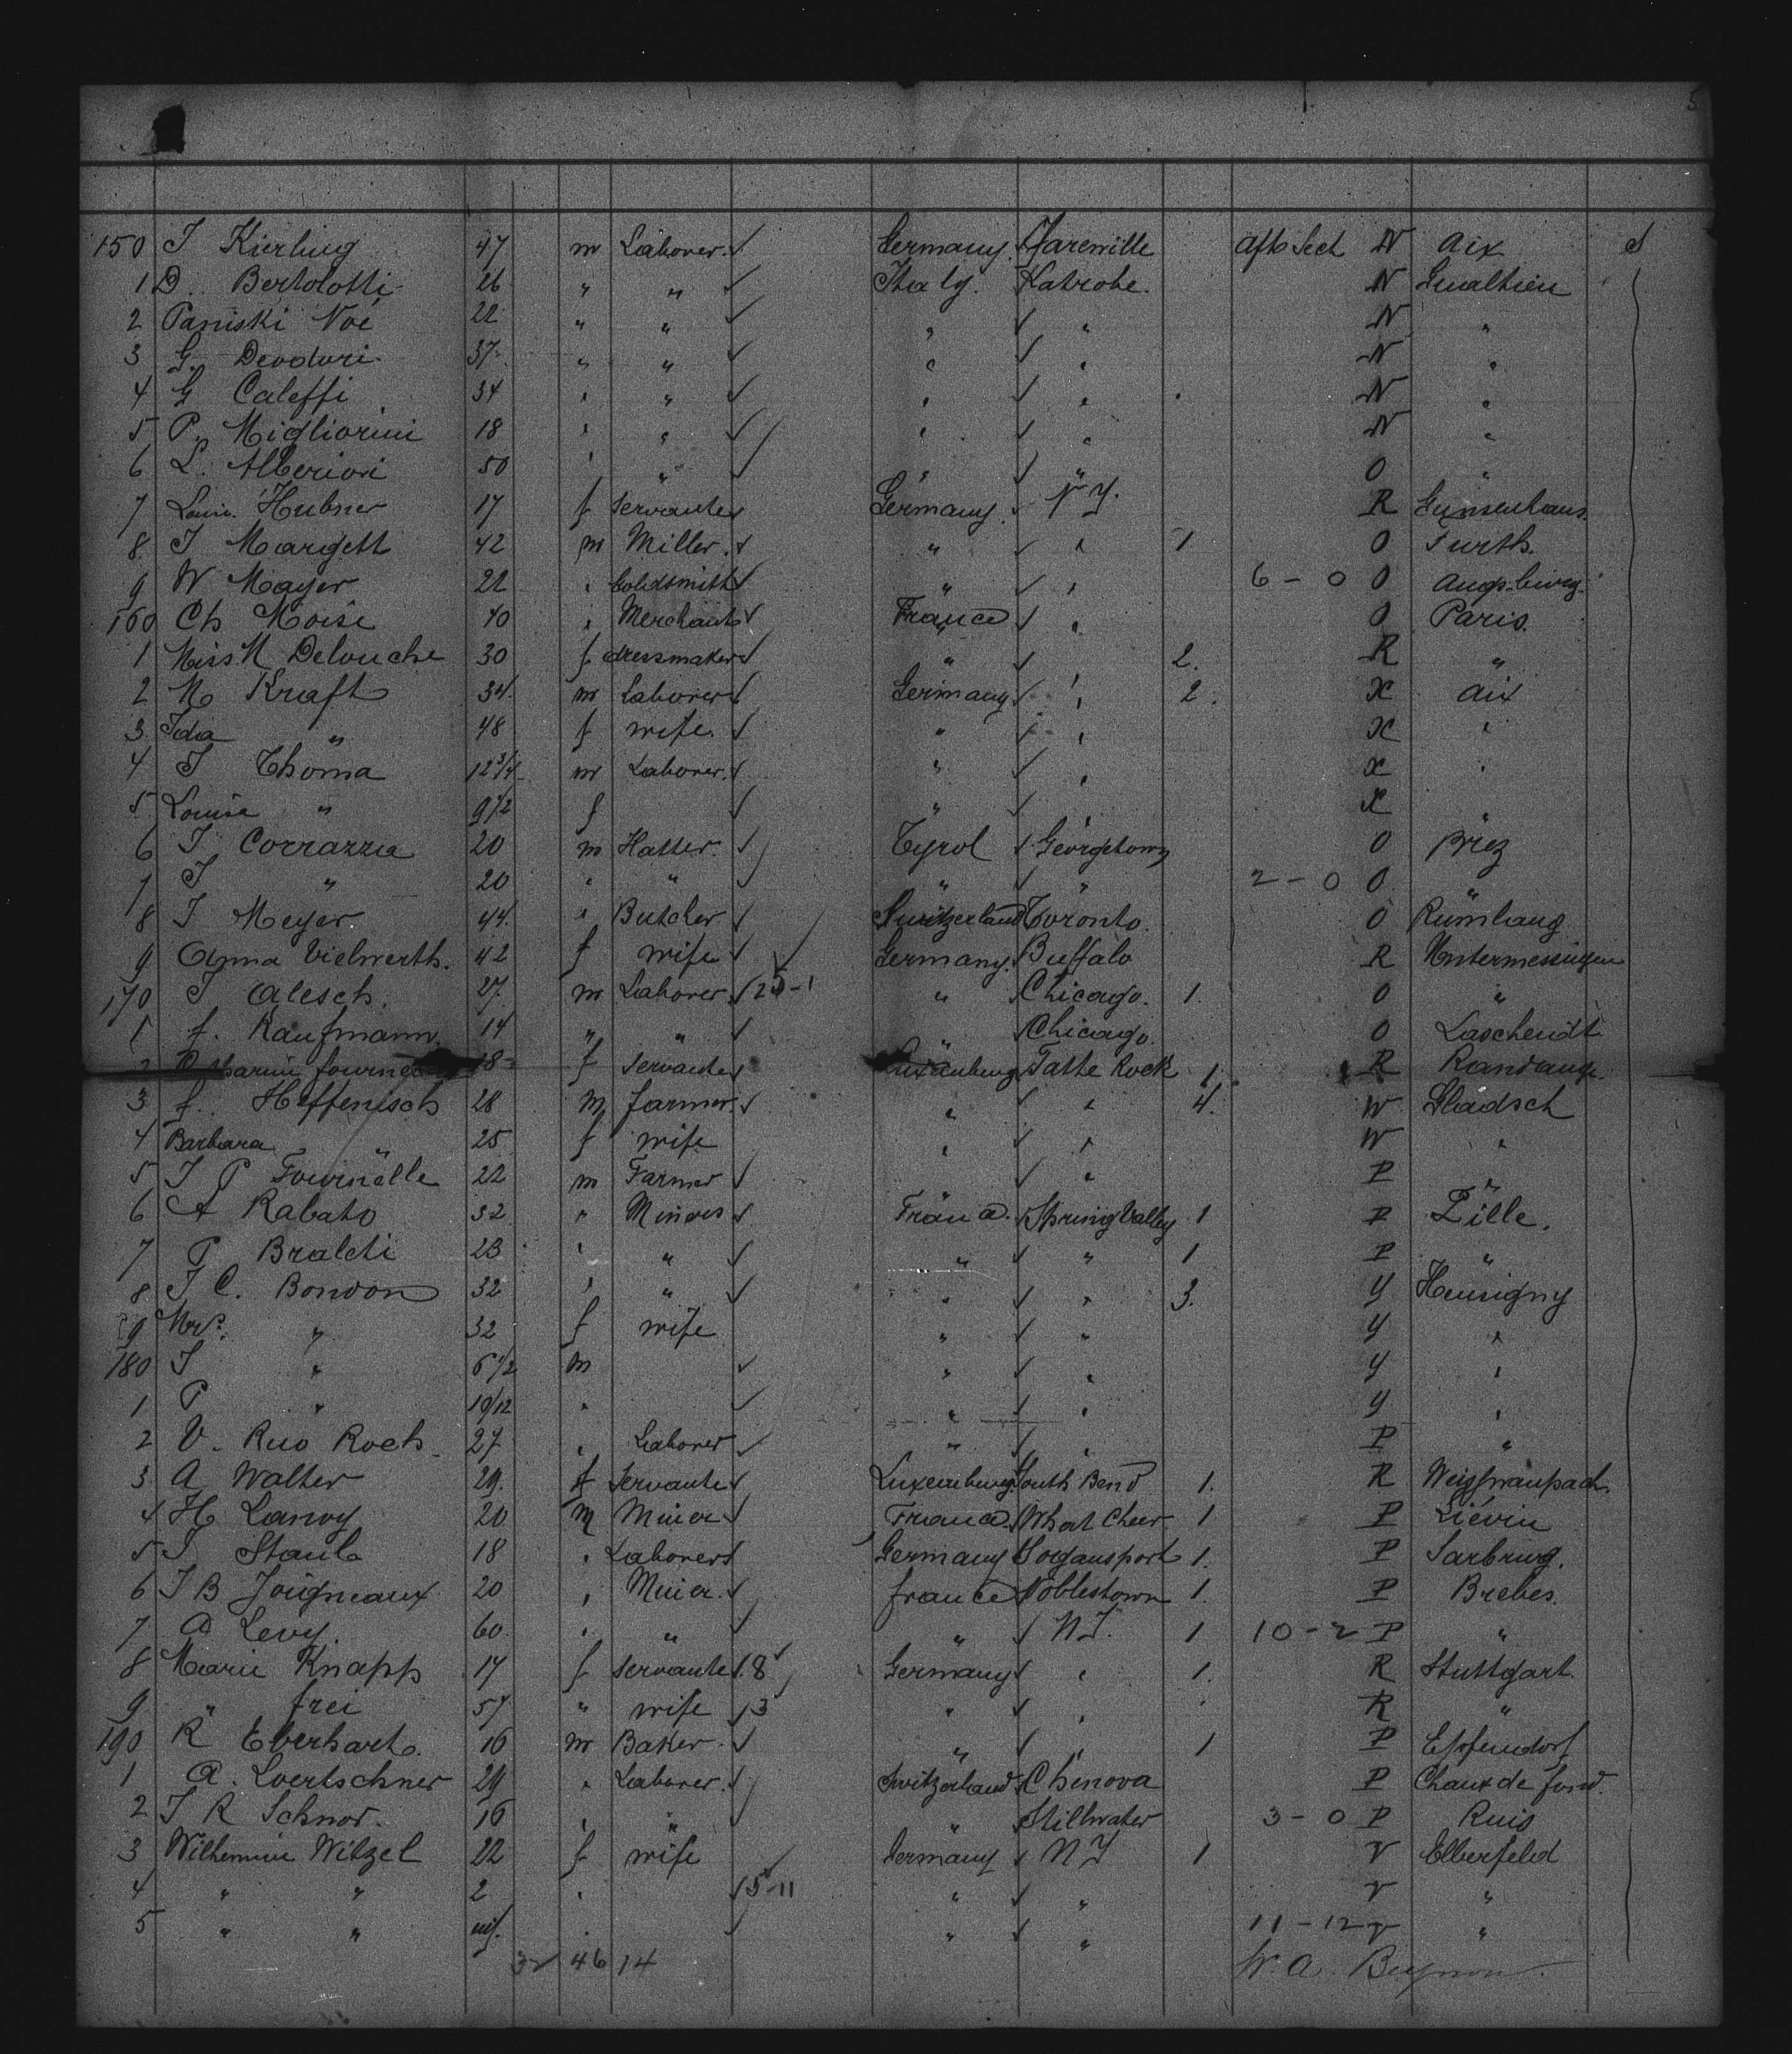 5
150 J Kierling 47 m Laborer. Germany. Afts Sect N Aix
1 D. Bertolotti 26 " " Italy. Latrobe. N Gualtieri
2 Paniski Noé 22 " " " " N "
3 G. Deodori 37 " " " " N "
4 G Caleffi 34 " " " " N "
5 P. Migliorini 18 " " " " N "
6 L. Alberiori 50 " " " " O "
7 Louise Hubner 17 f Servante Germany. N Y. R Gunsenhaus.
8 J Margett 42 m Miller. " " 1 O Furth.
9 W Mayer 22 " Goldsmith " " 6 - 0 O Augsburg.
160 Ch Moise 40 " Merchant France " O Paris.
1 Miss M Delouche 30 f dressmaker " 2. R "
2 M Kraft 34. m Laborer Germany " 2. X Aix
3 Ida " 48 f wife. " " X "
4 J Thoma 12 3/4 m Laborer. " " X "
5 Louise " 9 1/2 f " " X "
6 J Corrazza 20 m Hatter. Tyrol Georgetown O Briez
7 J " 20 " " " " 2 - 0 O "
8 J Meyer 44. " Butcher Switzerland Toronto. O Rümlang
9 Anna Vielwerth. 42 f wife Germany. Buffalo R Untermessingen
170 J Alesch. 27. m Laborer. 25-1 " Chicago. 1. O "
1 f. Kaufmann 14 " " " Chicago. O Laschendt
2 Catharine fournelle 18 f Servante Luxemburg Tatte Rock 1 R Randange
3 f. Heffenisch 28 m farmer. " " 4. W Gladsch
4 Barbara " 25 f wife " " W "
5 J P Fournelle 22 m Farmer " P "
6 A Rabato 32 " Miners France. Spring Valley 1 P Lille.
7 P Bralcti 23 " " " " 1 P "
8 J C. Bondon 32 " " " " 3. Y Hensigny
9 Mrs. " 32 f wife " " Y "
180 J " 6 1/2 m " " Y "
1 P " 10/12 " " " Y "
2 V. Rio Roch 27 " Laborer " " P "
3 A Walter 29. f Servante Luxemburg South Bend 1. R Weisswanpach.
4 H Lanvy 20 m Miner France. What Cheer. 1 P Liévin
5 J Staub 18 " Laborers Germany Logansport 1. P Sarbrug.
6 J B Joigneaux 20 " Miner. france Noblestown 1. P Brebes.
7 A Levy. 60. " " " N Y. 1 10 - 2 P "
8 Marie Knapp 17 f servante 8 Germany " 1. R Stuttgart.
9 " frei 57 " wife 3 " " R "
190 R Eberhart. 16 m Baker. " " 1 P Epfendorf
1 A. Loertschner 29 " Laborer. Switzerland Chenova P Chaux de fond.
2 J R Schnor. 16 " " " Stillwater 3 - 0 P Ruis
3 Wilhemine Witzel 22 f wife Germany N Y 1 V Elberfeld
4 " " 2 " 5-11 " " V "
5 " " inf. " " " 11 - 12 V "
32 46 14 W. A. Beynon.